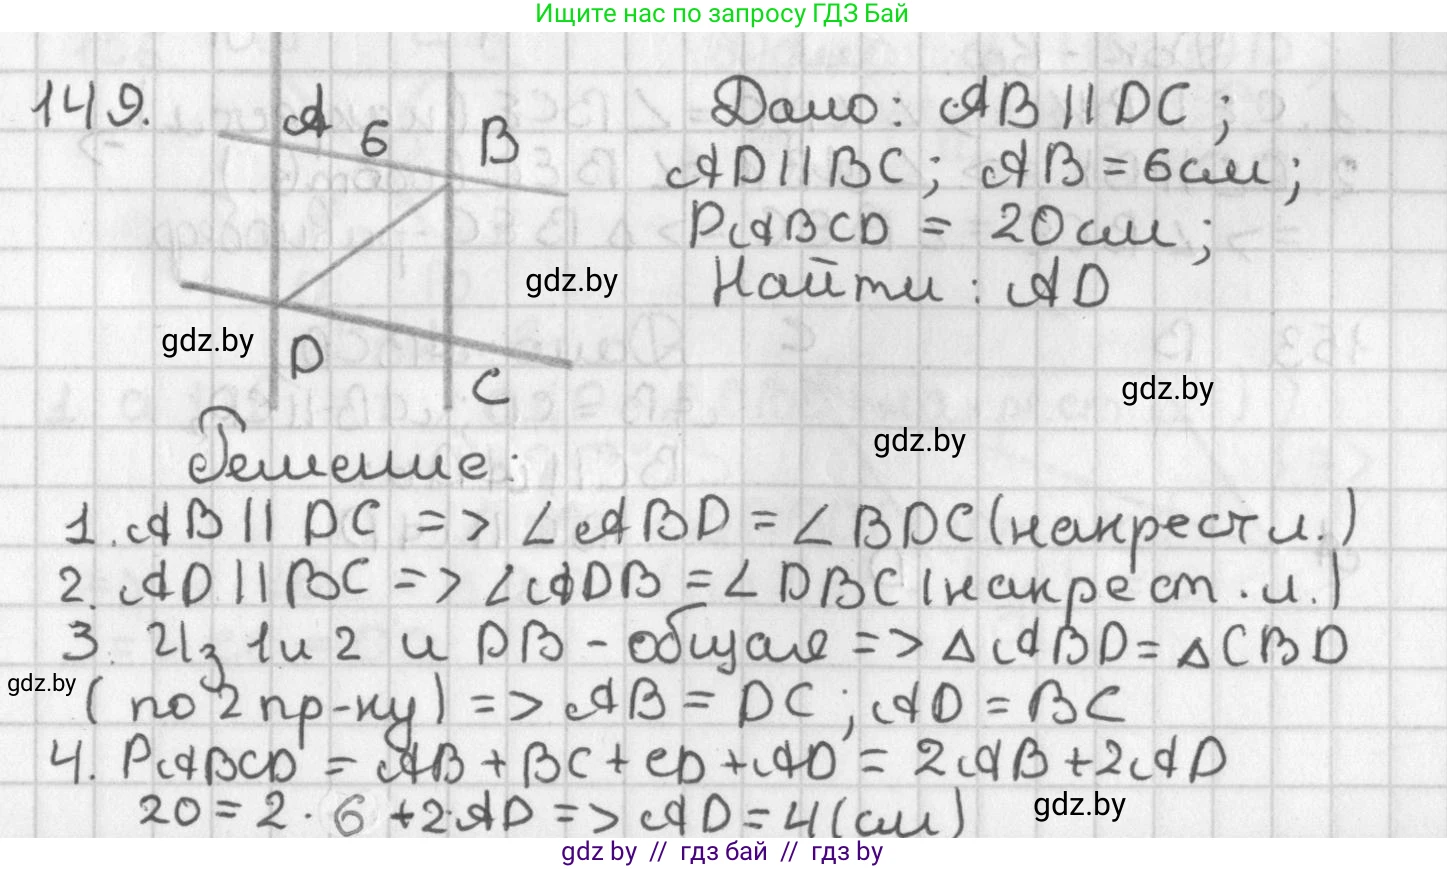 Ищите нас по запросу ГДЗ Бай
149.
A
6
B
D
C
Дано: AB || DC;
AD || BC; AB = 6см;
PABCD = 20см;
Найти: AD
gdz.by
gdz.by
gdz.by
gdz.by
Решение:
1. AB || DC => ∠ABD = ∠BDC (накрест л.)
2. AD || BC => ∠ADB = ∠DBC (накрест. л.)
3. Из 1 и 2 и DB - общая => △ABD = △CBD
gdz.by
(по 2 пр-ку) => AB = DC; AD = BC
4. PABCD = AB + BC + CD + AD = 2AB + 2AD
20 = 2 · 6 + 2·AD => AD = 4 (см)
gdz.by
gdz by // гдз бай // гдз by